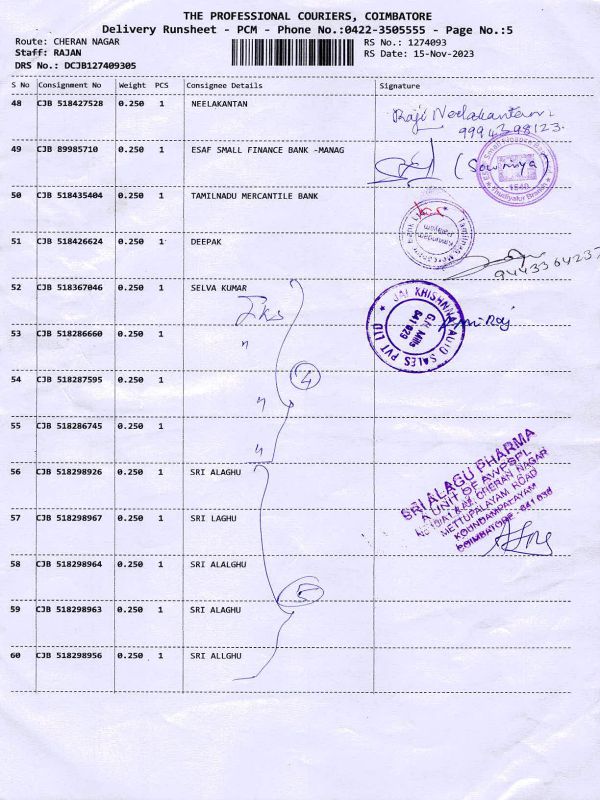 THE PROFESSIONAL COURIERS, COIMBATORE
Delivery Runsheet - PCM - Phone No.:0422-3505555 - Page No.:5
Route: CHERAN NAGAR RS No.: 1274093
Staff: RAJAN RS Date: 15-Nov-2023
DRS No.: DCJB127409305
S No Consignment No Weight PCS Consignee Details Signature
48 CJB 518427528 0.250 1 NEELAKANTAN
Raji Neelakantan.
9994398123.
49 CJB 89985710 0.250 1 ESAF SMALL FINANCE BANK -MANAG
(Sowmiya)
1540
Thudiyalur Branch
50 CJB 518435404 0.250 1 TAMILNADU MERCANTILE BANK
51 CJB 518426624 0.250 1 DEEPAK
9443364237
52 CJB 518367046 0.250 1 SELVA KUMAR
JAI KRISHNNA AUTO SALES PVT LTD
G.N. Mills
641 029
53 CJB 518286660 0.250 1
"
54 CJB 518287595 0.250 1
4
"
55 CJB 518286745 0.250 1
"
56 CJB 518298926 0.250 1 SRI ALAGHU
SRI ALAGU PHARMA
A UNIT OF AWPSPL
CHERAN NAGAR
METTUPALAYAM ROAD
KOUNDAMPATAYAM
COIMBATORE - 641 030
57 CJB 518298967 0.250 1 SRI LAGHU
58 CJB 518298964 0.250 1 SRI ALALGHU
5
59 CJB 518298963 0.250 1 SRI ALAGHU
60 CJB 518298956 0.250 1 SRI ALLGHU